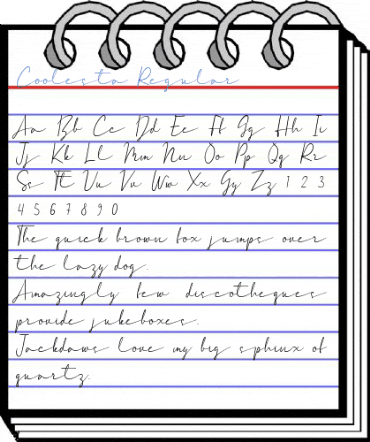 Coolesta Regular
Aa Bb Cc Dd Ee Ff Gg Hh Ii
Jj Kk Ll Mm Nn Oo Pp Qq Rr
Ss Tt Uu Vv Ww Xx Yy Zz 1 2 3
4 5 6 7 8 9 0
The quick brown fox jumps over
the lazy dog.
Amazingly few discotheques
provide jukeboxes.
Jackdaws love my big sphinx of
quartz.